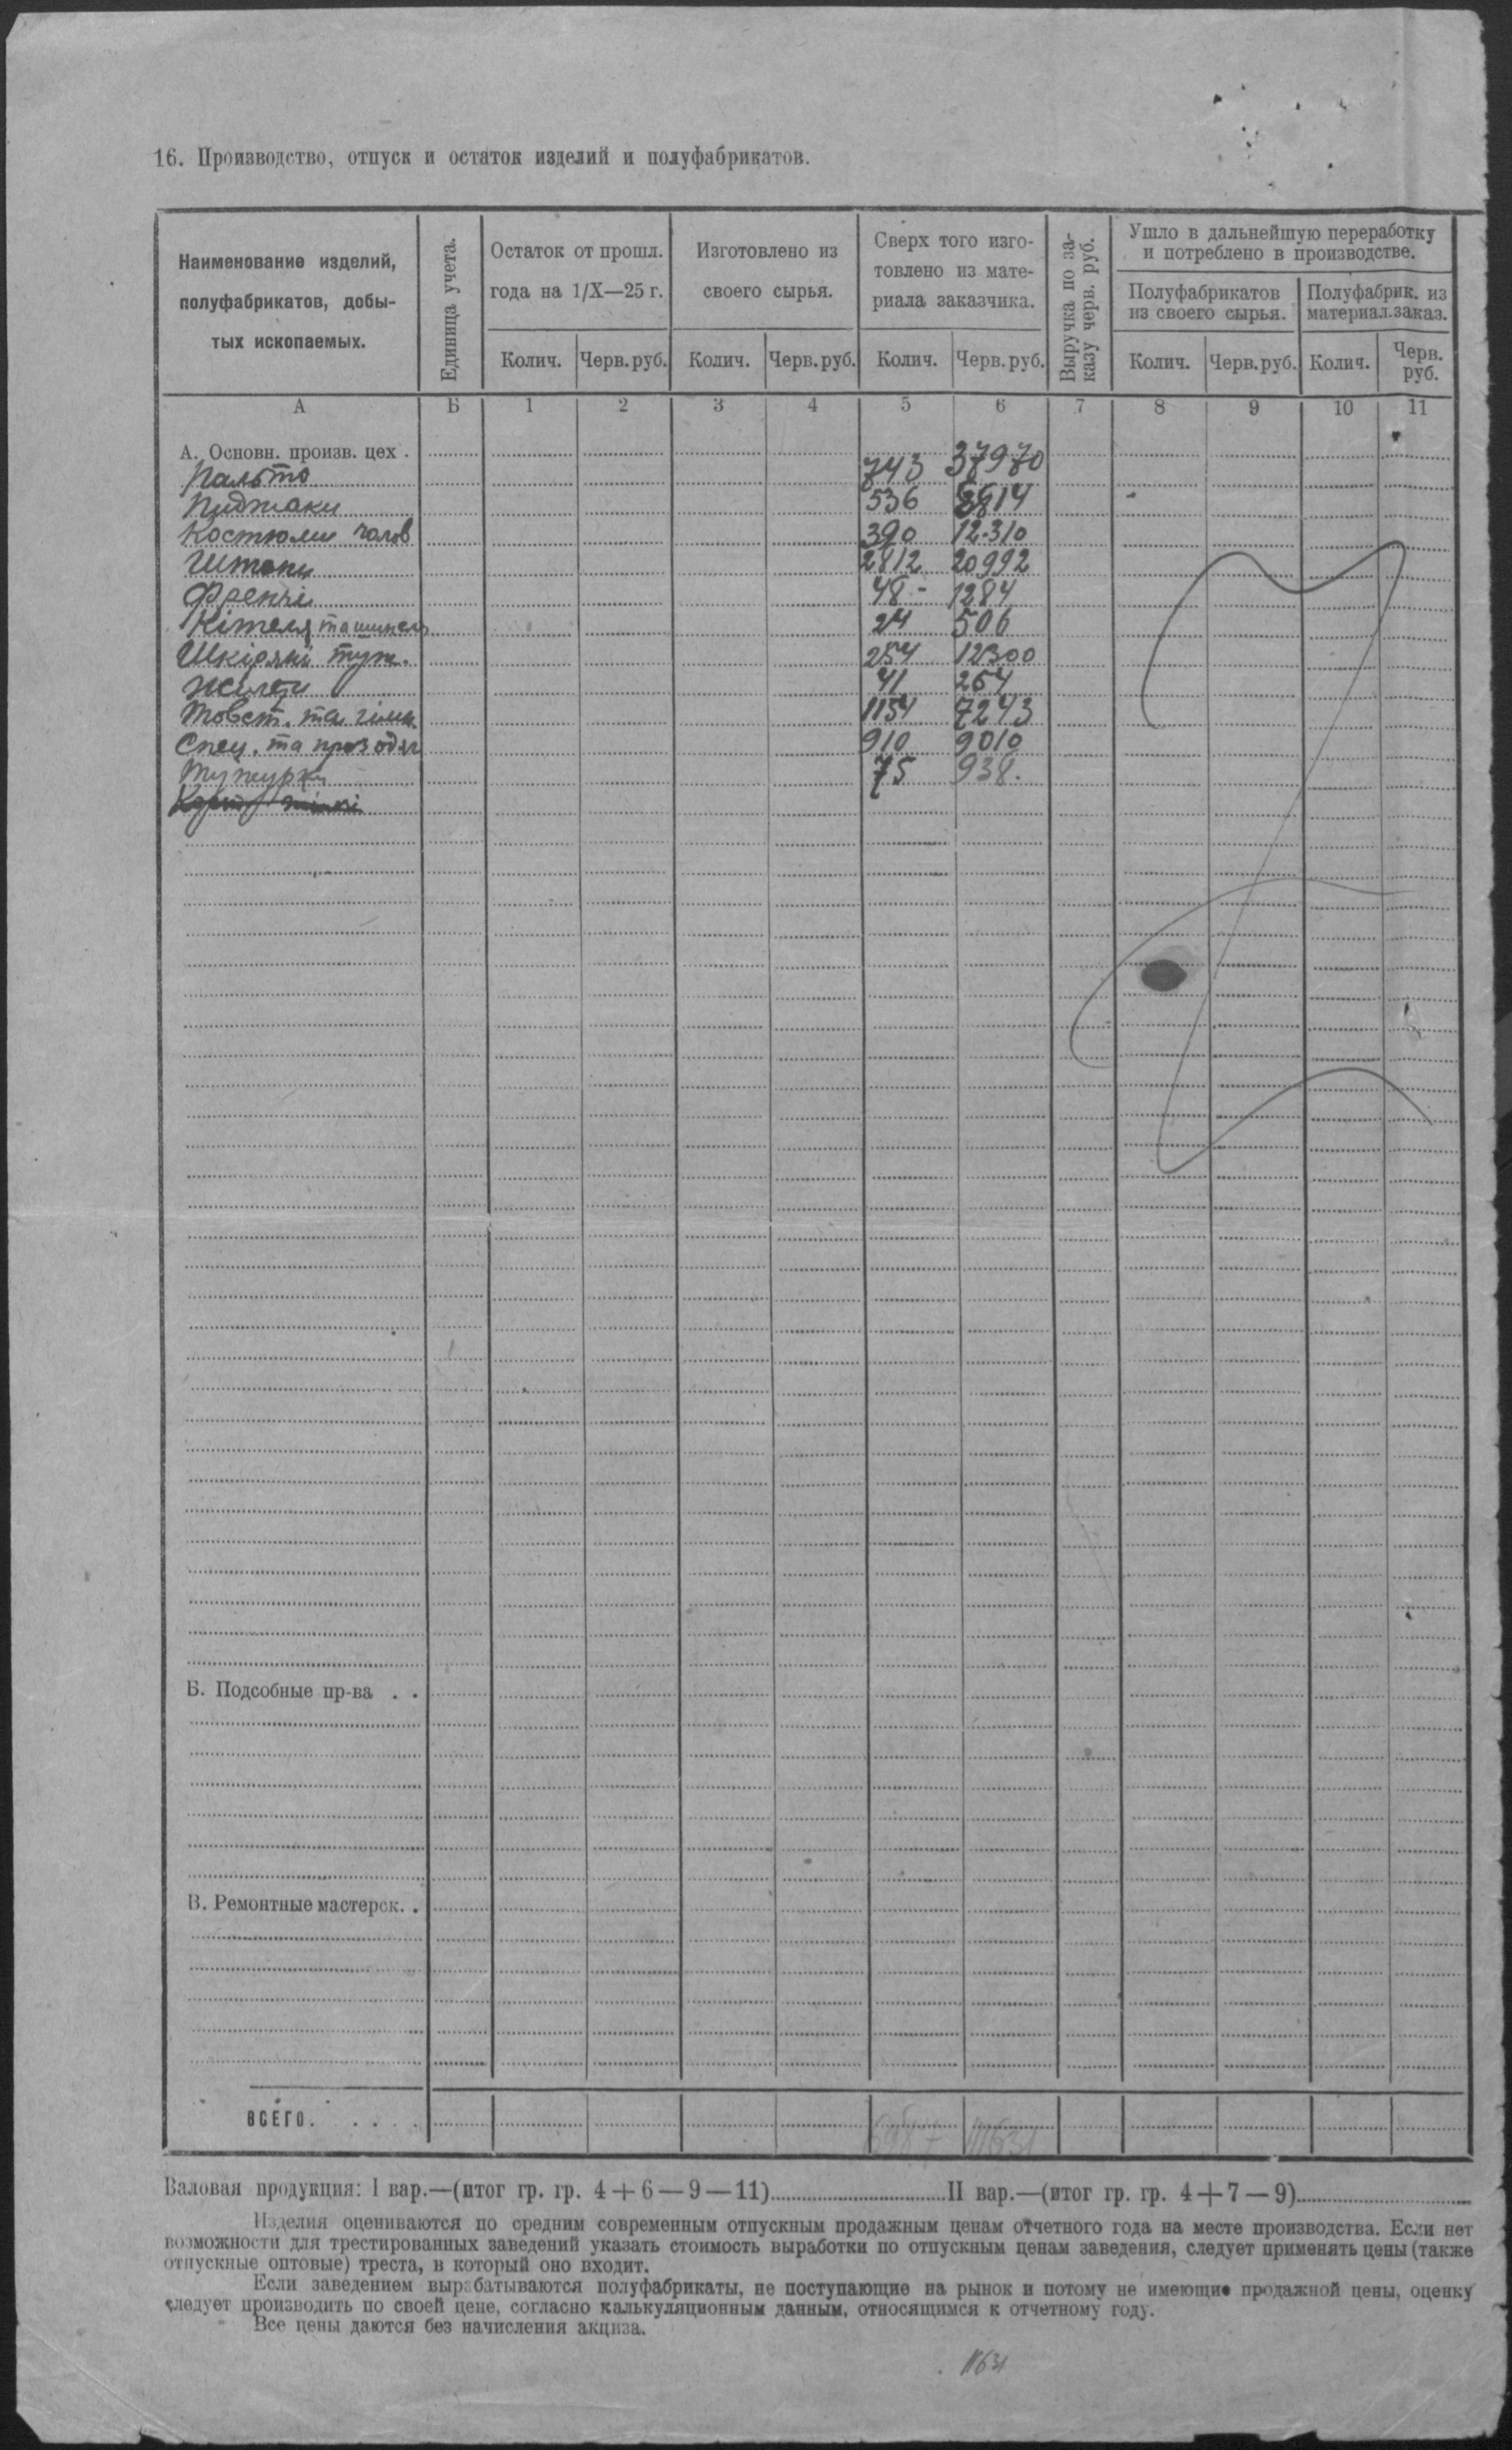 16. Производство, отпуск и остаток изделий и полуфабрикатов.
Наименование изделий, полуфабрикатов, добы-
тых ископаемых.
Единица учета.
Остаток от прошл.
года на 1/X—25 г.
Изготовлено из
своего сырья.
Сверх того изго-
товлено из мате-
риала заказчика.
Выручка по за-
казу черв. руб.
Ушло в дальнейшую переработку
и потреблено в производстве.
Полуфабрикатов
из своего сырья.
Полуфабрик. из
материал. заказ.
Колич. Черв. руб. Колич. Черв. руб. Колич. Черв. руб. Колич. Черв. руб. Колич. Черв. руб.
А Б 1 2 3 4 5 6 7 8 9 10 11
А. Основн. произв. цех .
Пальто 743 37970
Пиджаки 536
Костюми чолов 390 12310
Штани 2812 20992
Френчи 48 - 1284
Кітеля та шинель 24 506
Шкіряні туж. 254 12300
Жилети 41 264
Товст. та гімн. 1154 7243
Спец. та проз одяг 910 9010
Тужурки 75 938.
Б. Подсобные пр-ва . .
В. Ремонтные мастерск. .
ВСЕГО. . . . . 111631
Валовая продукция: I вар.—(итог гр. гр. 4 + 6 — 9 — 11) II вар.—(итог гр. гр. 4 + 7 — 9)
Изделия оцениваются по средним современным отпускным продажным ценам отчетного года на месте производства. Если нет
возможности для трестированных заведений указать стоимость выработки по отпускным ценам заведения, следует применять цены (также
отпускные оптовые) треста, в который оно входит.
Если заведением вырабатываются полуфабрикаты, не поступающие на рынок и потому не имеющие продажной цены, оценку
следует производить по своей цене, согласно калькуляционным данным, относящимся к отчетному году.
Все цены даются без начисления акциза.